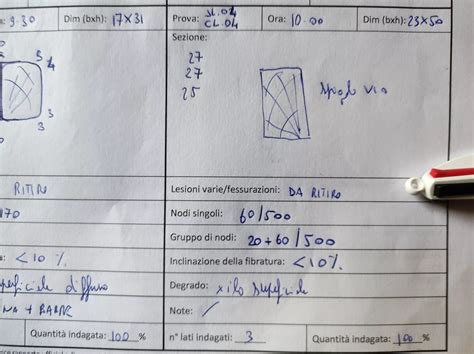 9.30 Dim (bxh): 17x31
3
4
3
3
RITIRO
170
<10%
superficiale diffuso
Quantità indagata: 100 %
Prova: SL.04 CL.04 Ora: 10.00 Dim (bxh): 23x50
Sezione:
27
27
25
via
Lesioni varie/fessurazioni: DA RITIRO
Nodi singoli: 60/500
Gruppo di nodi: 20+60/500
Inclinazione della fibratura: <10%
Degrado: xilo superficiale
Note: /
n° lati indagati: 3 Quantità indagata: 100 %